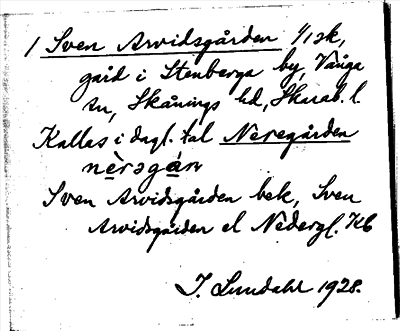 1 Sven Arvidsgården 1/1 sk,
gård i Stenberga by, Vånga
sn, Skånings hd, Skarab. l.
Kallas i dagl. tal Neregården
nèrəgán
Sven Arvidsgården bek, Sven
Arvidsgården el Nedergl. Kb
I. Lundahl 1928.